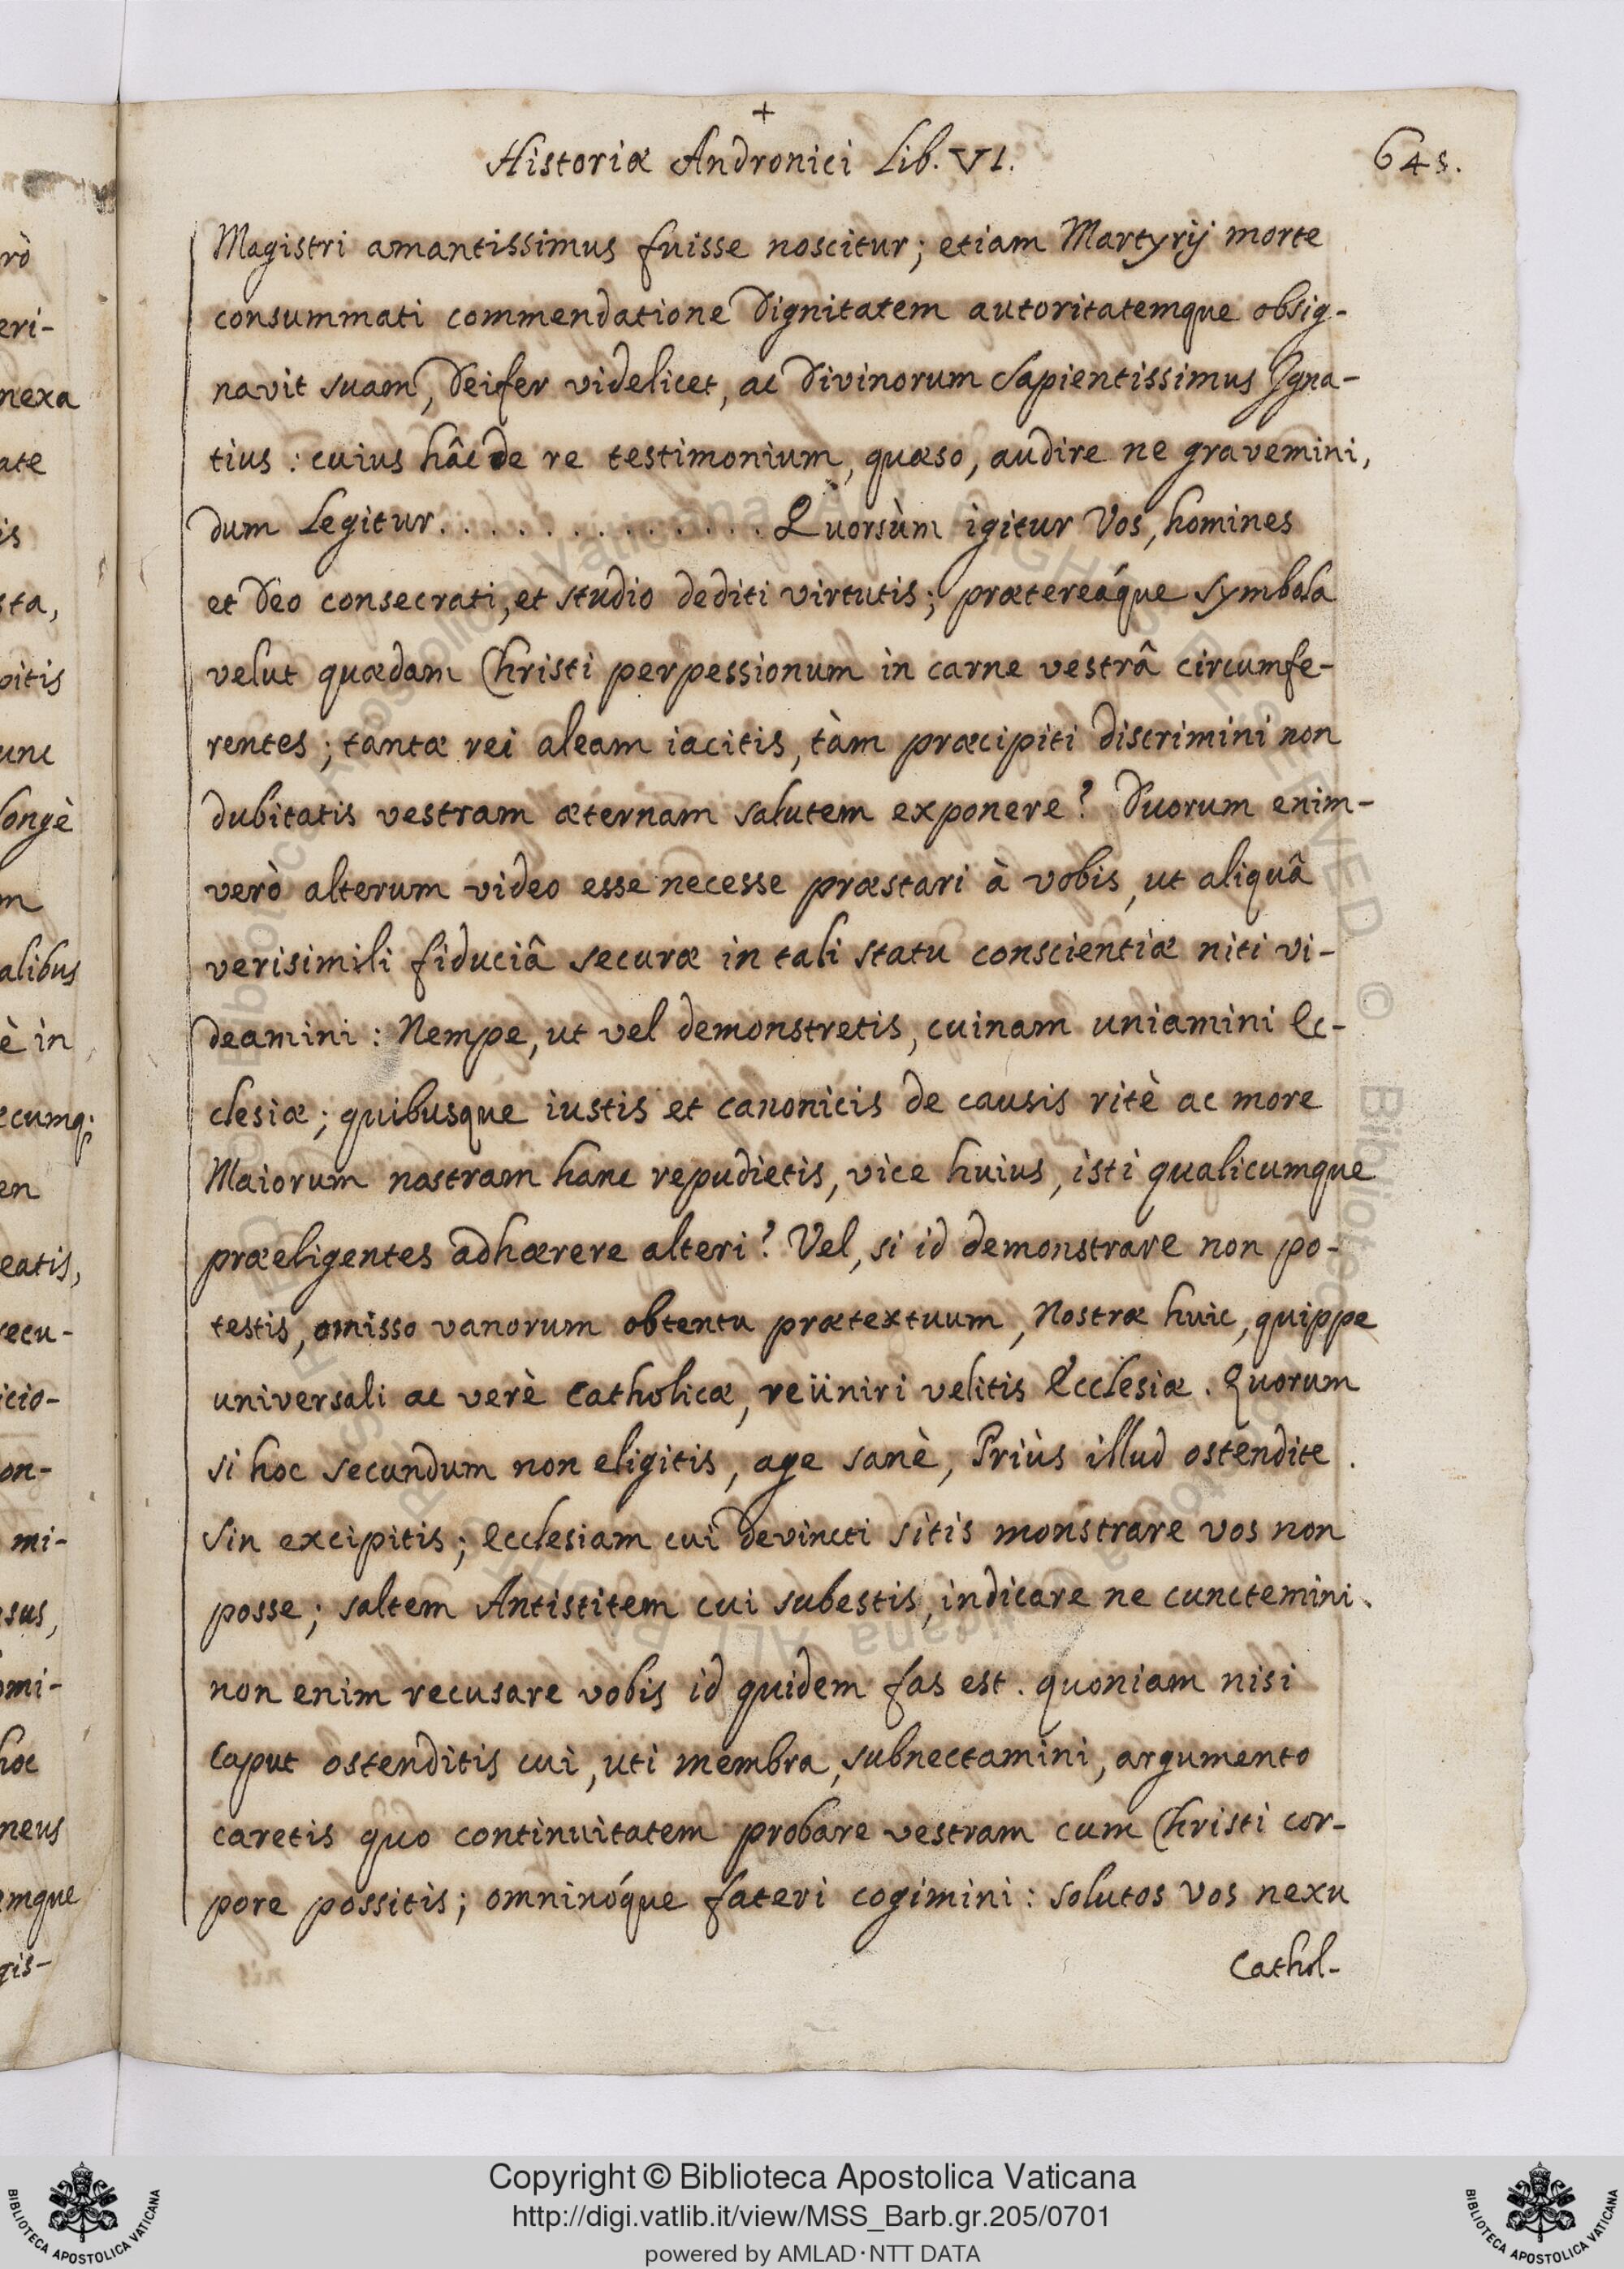 +
Historiæ Andronici Lib. VI.
645.
Magistri amantissimus fuisse noscitur; etiam Martyrij morte
consummati commendatione dignitatem autoritatemque obsig-
navit suam, Deifer videlicet, ac Divinorum Sapientissimus Igna-
tius : cuius hâc de re testimonium, quæso, audire ne gravemini,
dum Legitur. . . . . . . . . . . . . Quorsùm igitur Vos, homines
et Deo consecrati, et studio dediti virtutis; prætereáque symbola
velut quædam Christi perpessionum in carne vestrâ circumfe-
rentes; tantæ rei aleam iacitis, tàm præcipiti discrimini non
dubitatis vestram æternam salutem exponere? Duorum enim-
verò alterum video esse necesse præstari à vobis, ut aliquâ
verisimili fiduciâ securæ in tali statu conscientiæ niti vi-
deamini : Nempe, ut vel demonstretis, cuinam uniamini Ec-
clesiæ; quibusque iustis et canonicis de causis ritè ac more
Maiorum nostram hanc repudietis, vice huius, isti qualicumque
præeligentes adhærere alteri? Vel, si id demonstrare non po-
testis, omisso vanorum obtentu prætextuum, Nostræ huic, quippe
universali ac verè Catholicæ, reüniri velitis Ecclesiæ. Quorum
si hoc secundum non eligitis, age sanè, Priùs illud ostendite.
Sin excipitis; Ecclesiam cui devincti sitis monstrare vos non
posse; saltem Antistitem cui subestis, indicare ne cunctemini.
non enim recusare vobis id quidem fas est. quoniam nisi
Caput ostenditis cui, uti membra, subnectamini, argumento
caretis quo continuitatem probare vestram cum Christi cor-
pore possitis; omninóque fateri cogimini : solutos vos nexu
Cathol-
rò
eri-
nexa
ate
is
sta,
pitis
unc
longè
m
alibus
è in
ecumq;
en
eatis,
recu-
icio-
on-
mi-
sus,
omi-
hoc
neus
mque
gis-
Copyright © Biblioteca Apostolica Vaticana
http://digi.vatlib.it/view/MSS_Barb.gr.205/0701
powered by AMLAD·NTT DATA
BIBLIOTECA APOSTOLICA VATICANA
BIBLIOTECA APOSTOLICA VATICANA